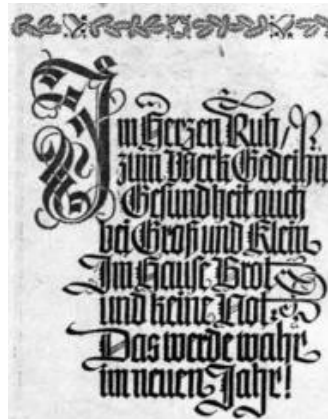 Im Herzen Ruh,
zum Werk Gedeihn
Gesundheit auch
bei Groß und Klein
Im Hause Brot
und keine Not:
Das werde wahr
im neuen Jahr!